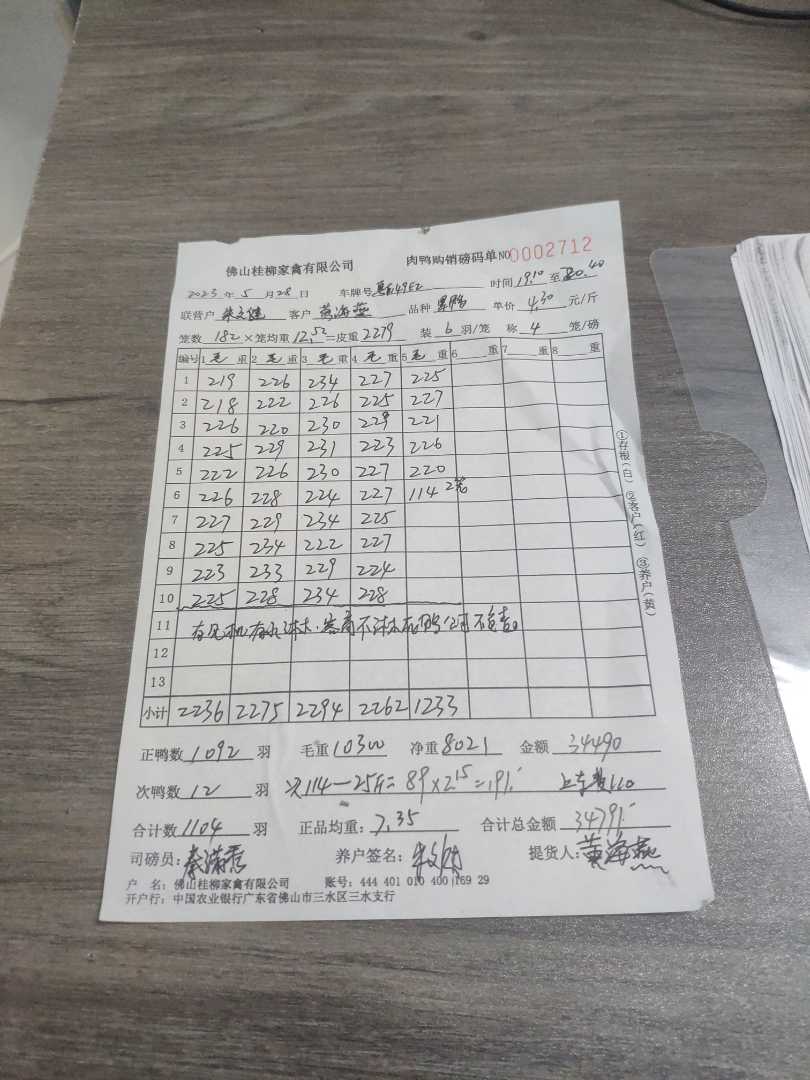 佛山桂柳家禽有限公司 肉鸭购销磅码单 NO 0002712
2023 年 5 月 28 日 车牌号 E49E2 时间 19.10 至 20.40
联营户 客户 黄海燕 品种 单价 4.30 元/斤
笼数 182 × 笼均重 12.52 = 皮重 2279 装 6 羽/笼 称 4 笼/磅
编号 1 毛 重 2 毛 重 3 毛 重 4 毛 重 5 毛 重 6 重 7 重 8 重
1 219 226 234 227 225
2 218 222 226 225 227
3 226 220 230 229 221
4 225 229 231 223 226
5 222 226 230 227 220
6 226 228 224 227 114 2笼
7 227 229 234 225
8 225 234 222 227
9 223 233 229 224
10 225 228 234 228
11 有风机有水淋水.客商不淋水死鸭公司不负责。
12
13
小计 2236 2275 2294 2262 1233
正鸭数 1092 羽 毛重 10300 净重 8021 金额 34490
次鸭数 12 羽 次114-25斤=89×2.15=191. 上车费110
合计数 1104 羽 正品均重: 7.35 合计总金额 34791.
司磅员: 秦满秀 养户签名: 提货人: 黄海燕
户 名: 佛山桂柳家禽有限公司 账号: 444 401 010 400 169 29
开户行: 中国农业银行广东省佛山市三水区三水支行
①存根(白) ②客户(红) ③养户(黄)